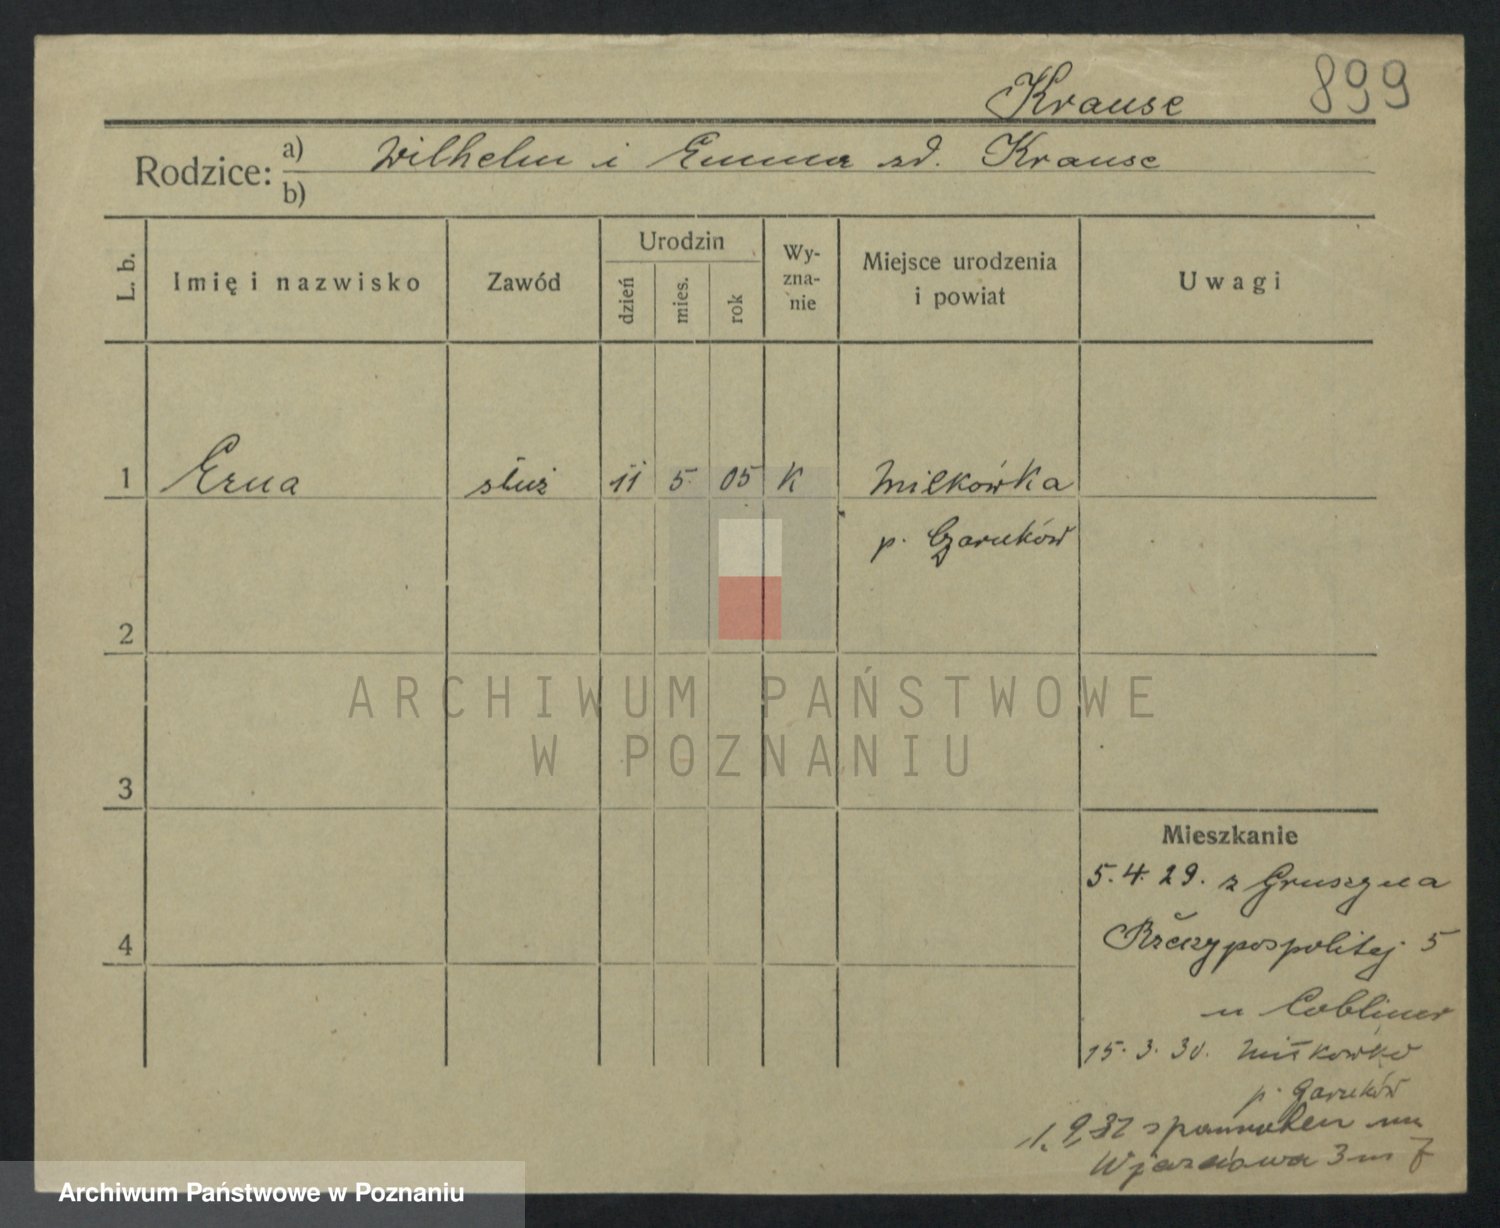 899
Krause
Rodzice: a) Wilhelm i Emma zd. Krause
b)
L. b.
Imię i nazwisko
Zawód
Urodzin
dzień
mies.
rok
Wy-
zna-
nie
Miejsce urodzenia
i powiat
Uwagi
1 Erna służ 11 5 05 K Miłkówka
p. Czarnków
2
ARCHIWUM PAŃSTWOWE
W POZNANIU
3
4
Mieszkanie
5.4.29. z Gruszyna
Rzeczypospolitej 5
u Cobliner
15.3.30. Miłkówko
p. Czarnków
1.9.32
Wjazdowa 3 m 7
Archiwum Państwowe w Poznaniu